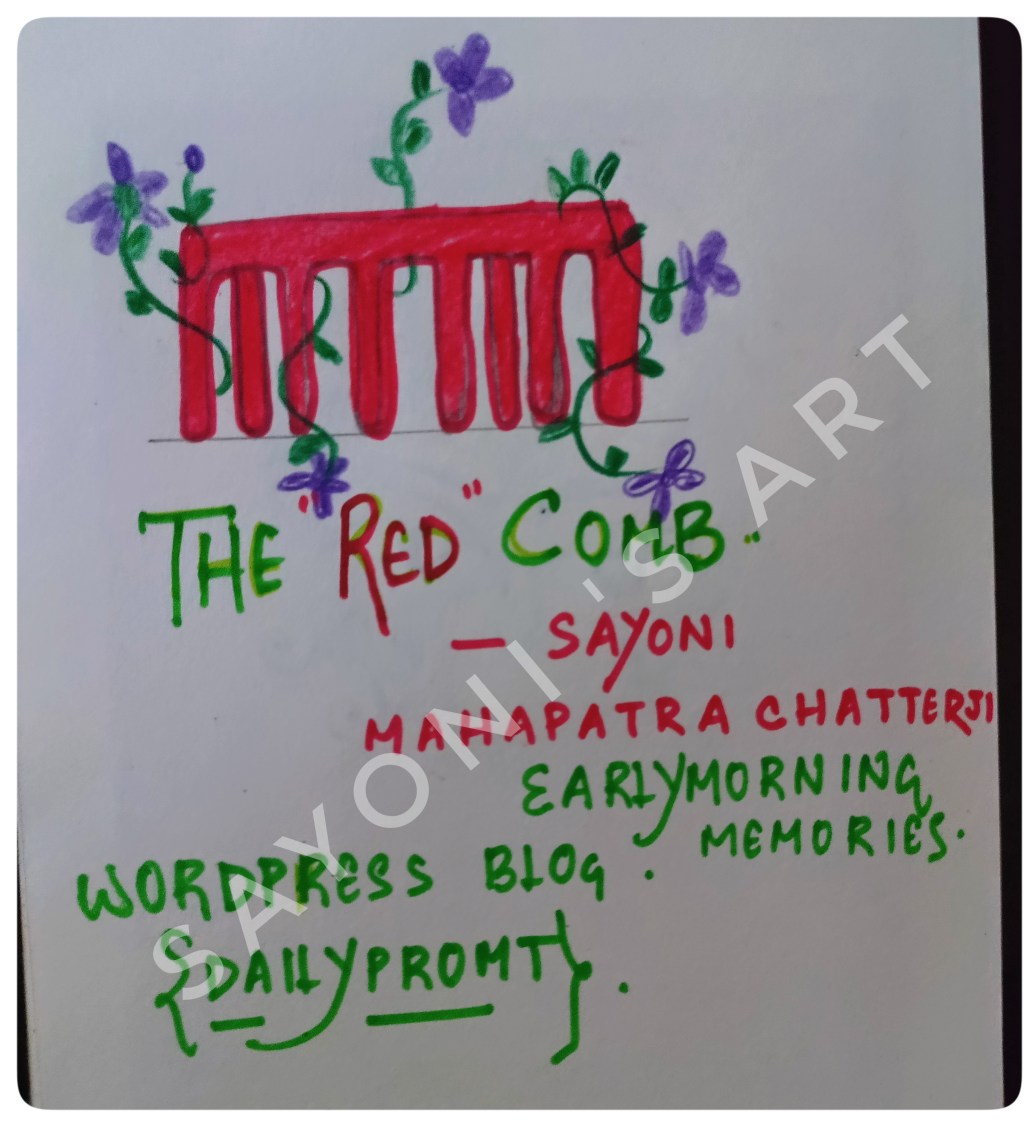 THE "RED" COMB.
— SAYONI
MAHAPATRA CHATTERJI
EARLYMORNING
MEMORIES.
WORDPRESS BLOG.
{DAILYPROMT}.
SAYONI'S ART